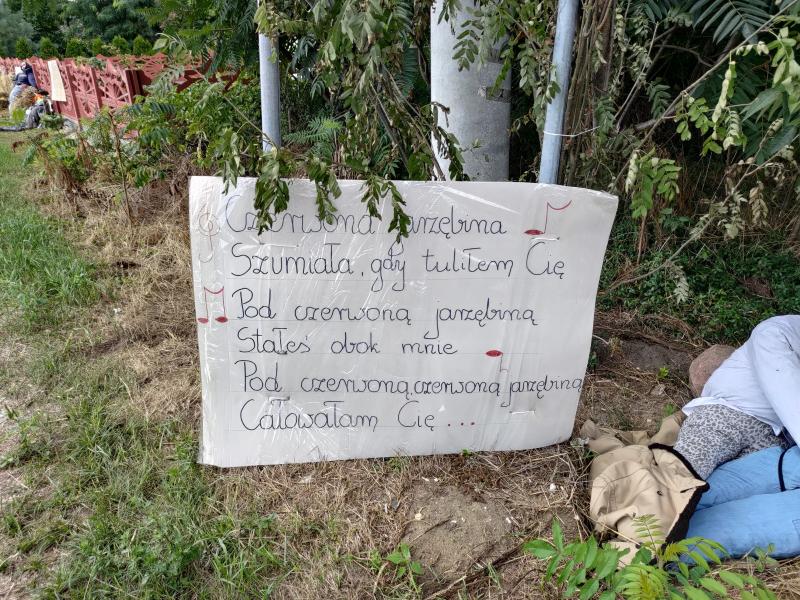 Czerwona jarzębina
Szumiała, gdy tuliłem Cię
Pod czerwoną jarzębiną
Stałeś obok mnie
Pod czerwoną czerwoną jarzębiną
Całowałam Cię...